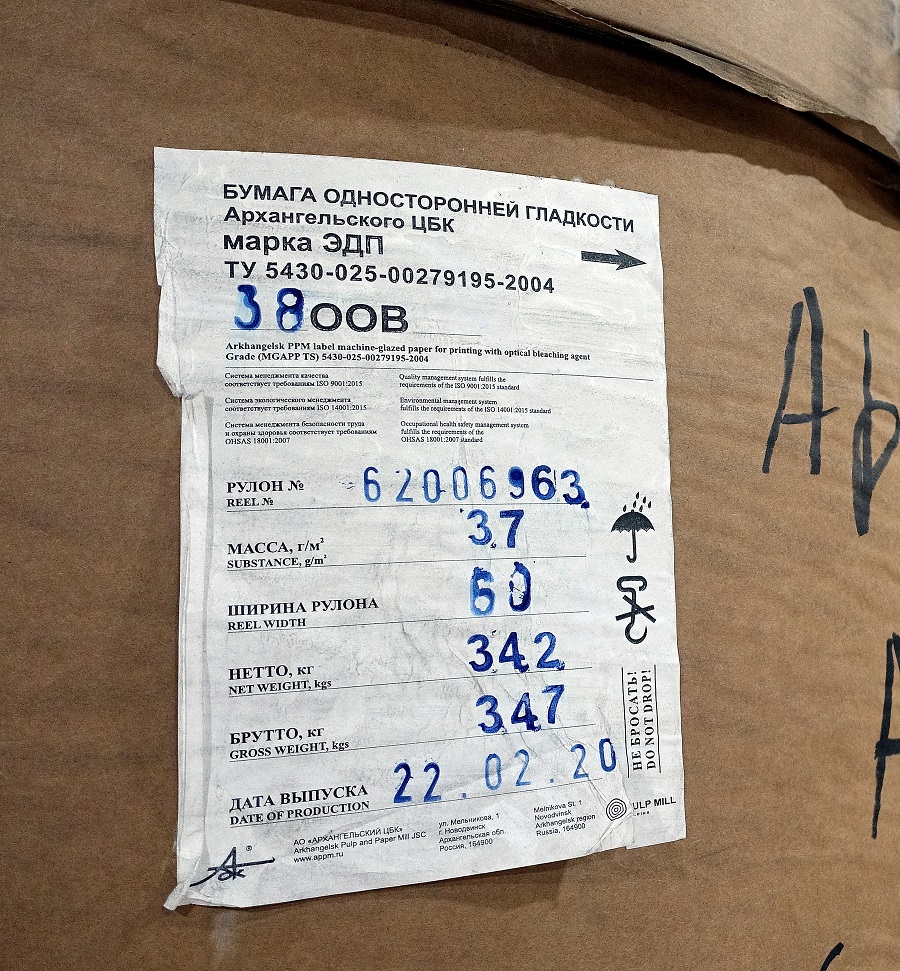 БУМАГА ОДНОСТОРОННЕЙ ГЛАДКОСТИ
Архангельского ЦБК
марка ЭДП
ТУ 5430-025-00279195-2004
38ООВ
Arkhangelsk PPM label machine-glazed paper for printing with optical bleaching agent
Grade (MGAPP TS) 5430-025-00279195-2004
Система менеджмента качества
соответствует требованиям ISO 9001:2015
Quality management system fulfills the
requirements of the ISO 9001:2015 standard
Система экологического менеджмента
соответствует требованиям ISO 14001:2015
Environmental management system
fulfills the requirements of the ISO 14001:2015 standard
Система менеджмента безопасности труда
и охраны здоровья соответствует требованиям
OHSAS 18001:2007
Occupational health safety management system
fulfills the requirements of the
OHSAS 18001:2007 standard
РУЛОН № 62006963
REEL №
МАССА, г/м² 37
SUBSTANCE, g/m²
ШИРИНА РУЛОНА 60
REEL WIDTH
НЕТТО, кг 342
NET WEIGHT, kgs
БРУТТО, кг 347
GROSS WEIGHT, kgs
ДАТА ВЫПУСКА 22.02.20
DATE OF PRODUCTION
НЕ БРОСАТЬ!
DO NOT DROP!
АО «АРХАНГЕЛЬСКИЙ ЦБК»
Arkhangelsk Pulp and Paper Mill JSC
www.appm.ru
ул. Мельникова, 1
г. Новодвинск
Архангельская обл.
Россия, 164900
Melnikova St. 1
Novodvinsk
Arkhangelsk region
Russia, 164900
ULP MILL
®